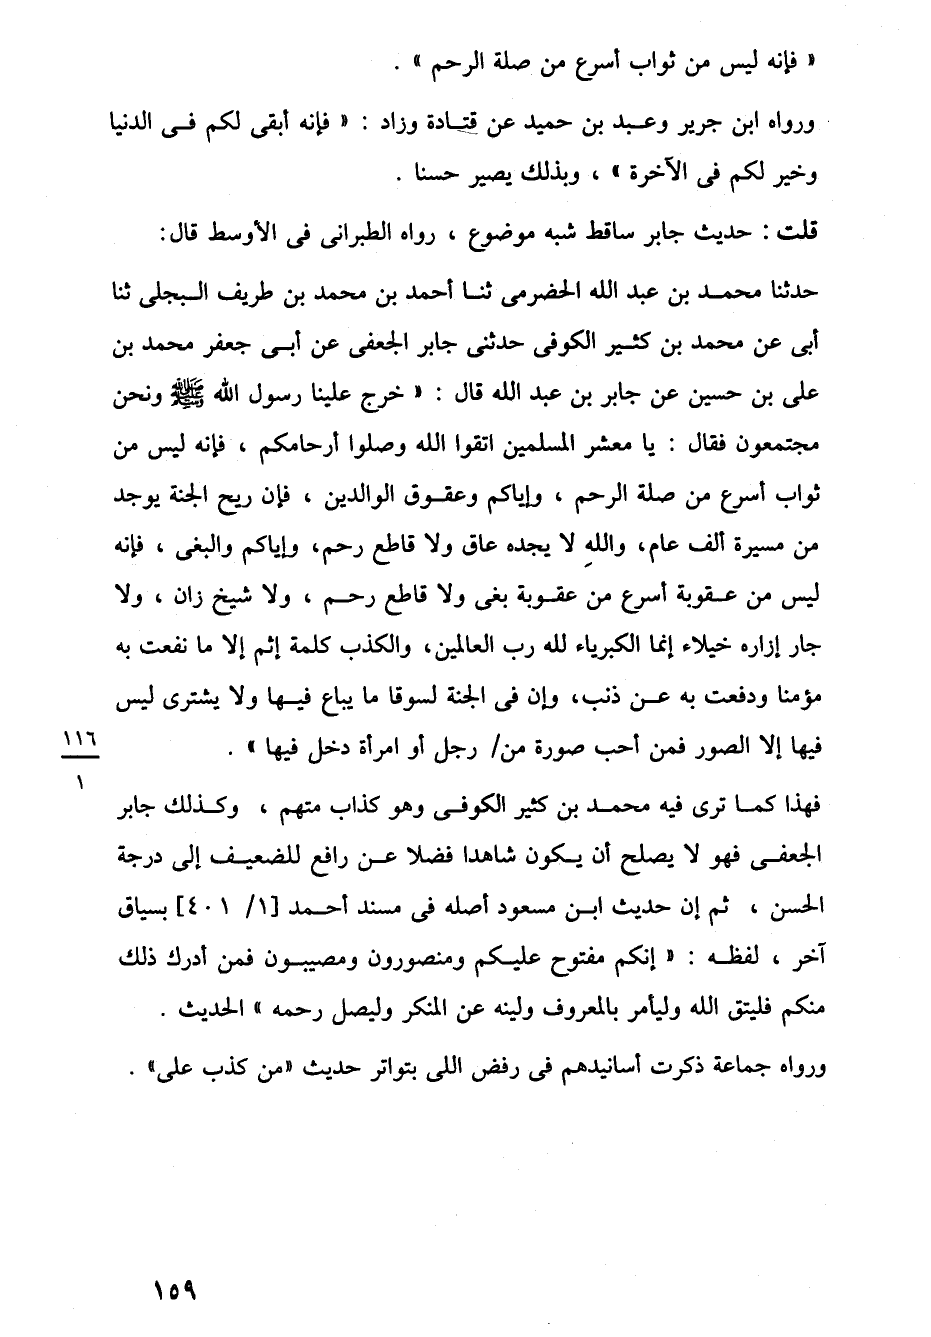 « فإنه ليس من ثواب أسرع من صلة الرحم » .
ورواه ابن جرير وعبد بن حميد عن قتادة وزاد : « فإنه أبقى لكم فى الدنيا
وخير لكم فى الآخرة » ، وبذلك يصير حسنا .
قلت : حديث جابر ساقط شبه موضوع ، رواه الطبرانى فى الأوسط قال:
حدثنا محمد بن عبد الله الحضرمى ثنا أحمد بن محمد بن طريف البجلى ثنا
أبى عن محمد بن كثير الكوفى حدثنى جابر الجعفى عن أبى جعفر محمد بن
على بن حسين عن جابر بن عبد الله قال : « خرج علينا رسول الله ﷺ ونحن
مجتمعون فقال : يا معشر المسلمين اتقوا الله وصلوا أرحامكم ، فإنه ليس من
ثواب أسرع من صلة الرحم ، وإياكم وعقوق الوالدين ، فإن ريح الجنة يوجد
من مسيرة ألف عام، واللهِ لا يجده عاق ولا قاطع رحم، وإياكم والبغى ، فإنه
ليس من عقوبة أسرع من عقوبة بغى ولا قاطع رحم ، ولا شيخ زان ، ولا
جار إزاره خيلاء إنما الكبرياء لله رب العالمين، والكذب كلمة إثم إلا ما نفعت به
مؤمنا ودفعت به عن ذنب، وإن فى الجنة لسوقا ما يباع فيها ولا يشترى ليس
فيها إلا الصور فمن أحب صورة من/ رجل أو امرأة دخل فيها » .
١١٦
١
فهذا كما ترى فيه محمد بن كثير الكوفى وهو كذاب متهم ، وكذلك جابر
الجعفى فهو لا يصلح أن يكون شاهدا فضلا عن رافع للضعيف إلى درجة
الحسن ، ثم إن حديث ابن مسعود أصله فى مسند أحمد [١/ ٤٠١] بسياق
آخر ، لفظه : « إنكم مفتوح عليكم ومنصورون ومصيبون فمن أدرك ذلك
منكم فليتق الله وليأمر بالمعروف ولينه عن المنكر وليصل رحمه » الحديث .
ورواه جماعة ذكرت أسانيدهم فى رفض اللى بتواتر حديث «من كذب على» .
١٥٩